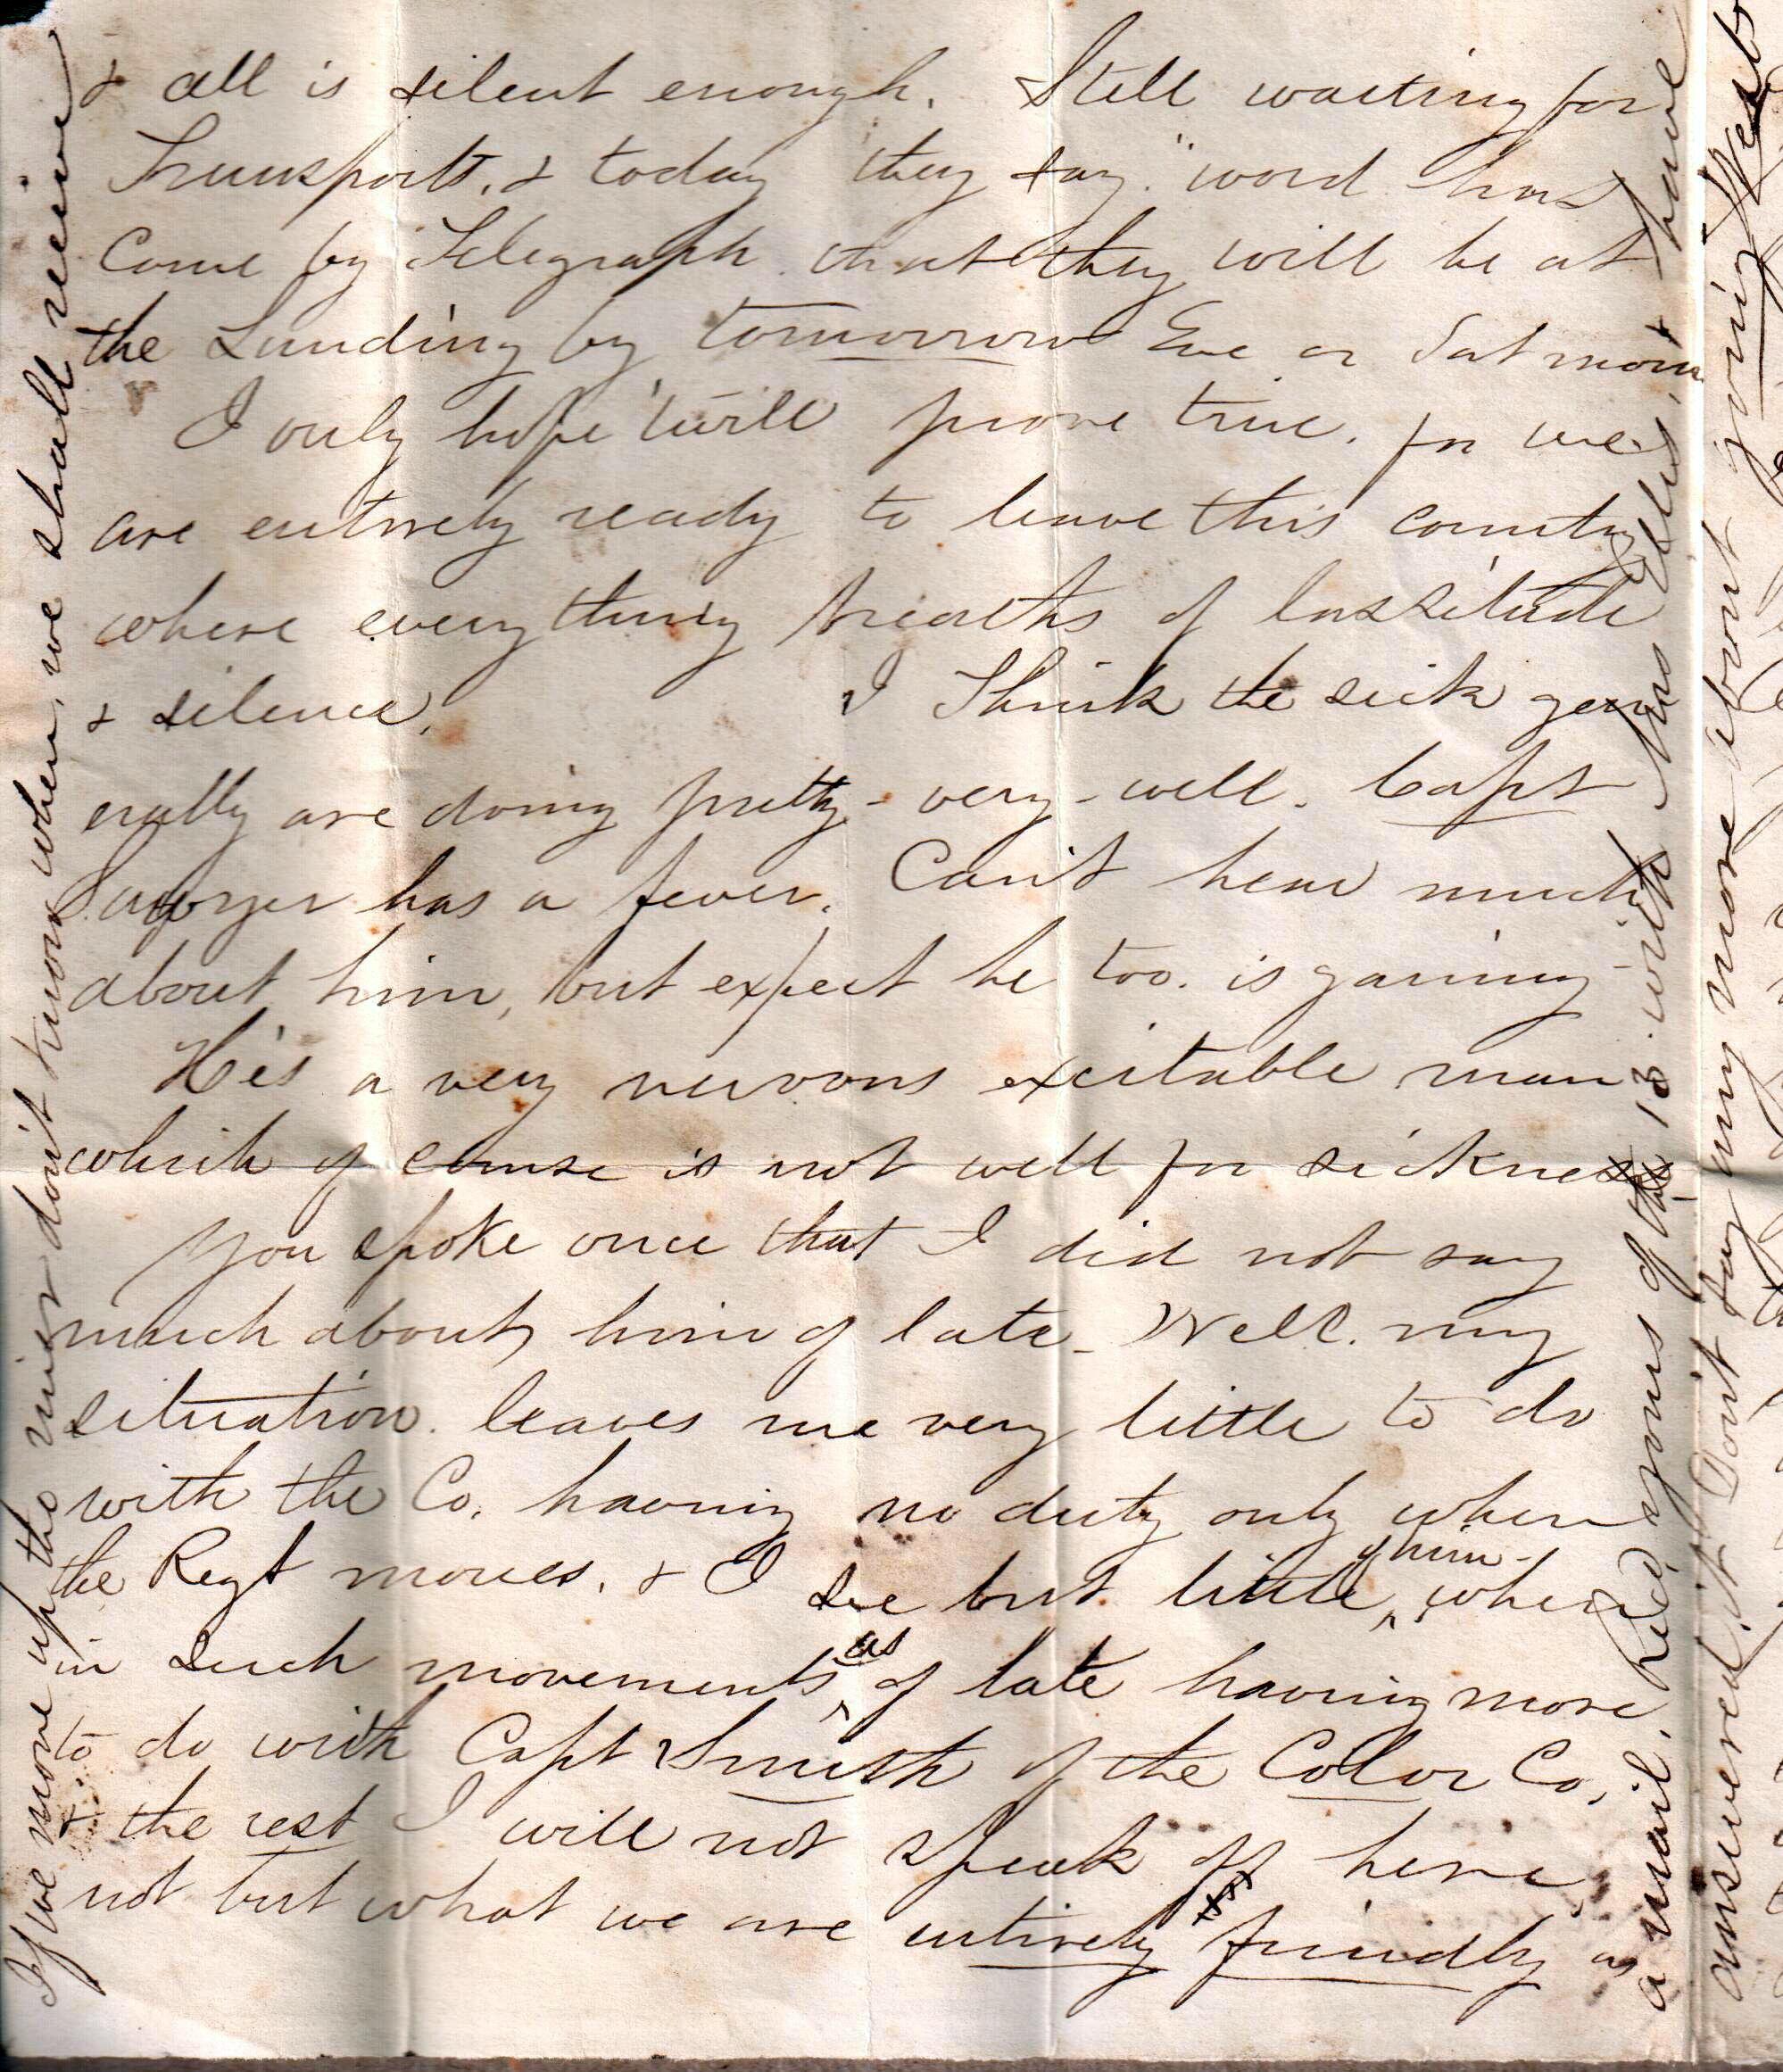 & all is silent enough. Still waiting for
Transports, & today "they say" word has
Come by Telegraph that they will be at
the Landing by tomorrow Eve or Sat morn
I only hope 'twill prove true. for we
are entirely ready to leave this country
where everything breaths of lassitude
& silence. I Think the sick gen
erally are doing pretty - very - well. Capt
Sawyer has a fever. Can't hear much
about him, but expect he too. is gaining
He's a very nervous excitable man
which of course is not well for sickness
You spoke once that I did not say
much about him of late - Well. my
situation leaves me very little to do
with the Co. having no duty only when
the Regt moves. & I see but little of him - when
in such movements as of late having more
to do with Capt Smith of the Color Co,
& the rest I will not speak of here
not but what we are entirely friendly as
If we move up the river don't know when, we shall receive
a mail. Recd yours of the 13 with Mrs Ellis, & have
answered it. Don't say any more about going West